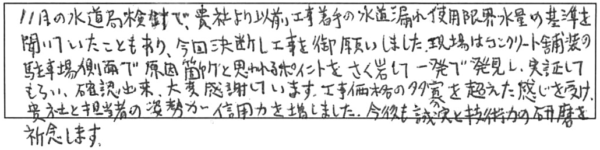 11月の水道局検針で、貴社より以前、工事着手の水道漏れ使用限界水量の基準を
聞いていたこともあり、今回決断し工事を御願いしました。現場はコンクリート舗装の
駐車場側面で原因箇所と思われるポイントをさく岩して一発で発見し、実証して
もらい、確認出来、大変感謝しています。工事価格の多寡を超えた感じを受け、
貴社と担当者の姿勢が信用力を増しました。今後も誠実と技術力の研磨を
祈念します。